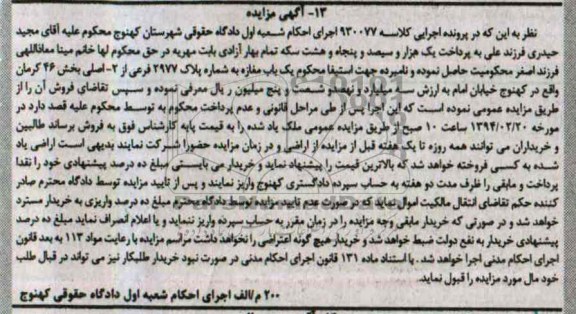 ۱۳- آگهی مزایده
نظر به این که در پرونده اجرایی کلاسه ۹۳۰۰۷۷ اجرای احکام شعبه اول دادگاه حقوقی شهرستان کهنوج محکوم علیه آقای مجید
حیدری فرزند علی به پرداخت یک هزار و سیصد و پنجاه و هشت سکه تمام بهار آزادی بابت مهریه در حق محکوم لها خانم مینا معاف‌اللهی
فرزند اصغر محکومیت حاصل نموده و نامبرده جهت استیفا محکوم یک باب مغازه به شماره پلاک ۲۹۷۷ فرعی از ۲-اصلی بخش ۴۶ کرمان
واقع در کهنوج خیابان امام به ارزش سه میلیارد و نهصد و شصت و پنج میلیون ریال معرفی نموده و سپس تقاضای فروش آن را از
طریق مزایده عمومی نموده است که این اجرا پس از طی مراحل قانونی و عدم پرداخت محکوم به توسط محکوم علیه قصد دارد در
مورخه ۱۳۹۴/۰۲/۲۰ ساعت ۱۰ صبح از طریق مزایده عمومی ملک یاد شده را به قیمت پایه کارشناس فوق به فروش برساند طالبین
و خریداران می توانند همه روزه تا یک هفته قبل از مزایده از اراضی و در زمان مزایده حضورا شرکت نمایند بدیهی است اراضی یاد
شده به کسی فروخته خواهد شد که بالاترین قیمت را پیشنهاد نماید و خریدار می بایستی مبلغ ده درصد پیشنهادی خود را نقدا
پرداخت و مابقی را ظرف مدت دو هفته به حساب سپرده دادگستری کهنوج واریز نمایند و پس از تایید مزایده توسط دادگاه محترم صادر
کننده حکم تقاضای انتقال مالکیت اموال نماید که در صورت عدم تایید مزایده توسط دادگاه محترم مبلغ ده درصد واریزی به خریدار مسترد
خواهد شد و در صورتی که خریدار مابقی وجه مزایده را در زمان مقرر به حساب سپرده واریز ننماید و یا اعلام انصراف نماید مبلغ ده درصد
پیشنهادی خریدار به نفع دولت ضبط خواهد شد و خریدار هیچ گونه اعتراضی را نخواهد داشت مراسم مزایده با رعایت مواد ۱۱۳ به بعد قانون
اجرای احکام مدنی اجرا خواهد شد. با استناد ماده ۱۳۱ قانون اجرای احکام مدنی در صورت نبود خریدار طلبکار نیز می تواند در قبال طلب
خود مال مورد مزایده را قبول نماید.
۲۰۰ م/الف اجرای احکام شعبه اول دادگاه حقوقی کهنوج